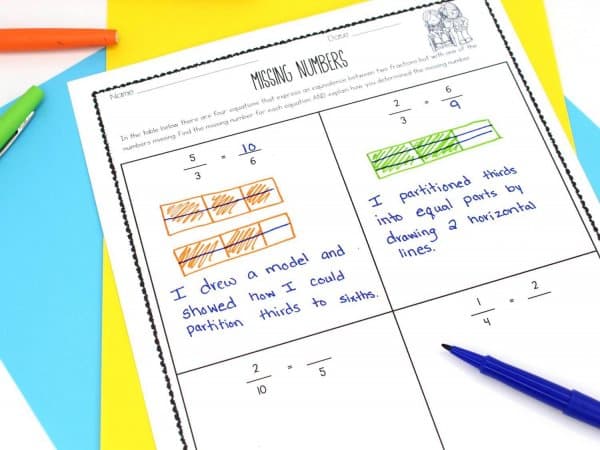 Name
Date
MISSING NUMBERS
In the table below there are four equations that express an equivalence between two fractions but with one of the
numbers missing. Find the missing number for each equation AND explain how you determined the missing number.
5/3 = 10/6
I drew a model and
showed how I could
partition thirds to sixths.
2/3 = 6/9
I partitioned thirds
into equal parts by
drawing 2 horizontal
lines.
2/10 = __/5
1/4 = 2/__